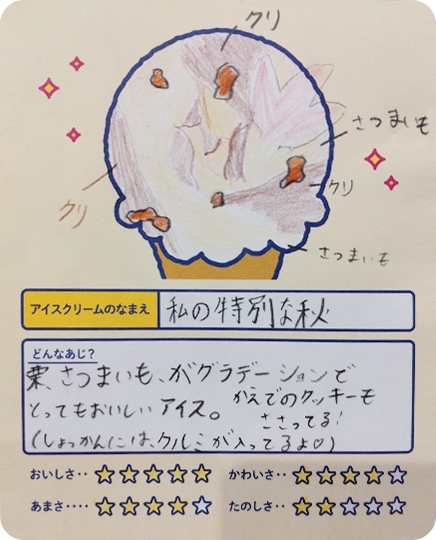 クリ
さつまいも
クリ
クリ
さつまいも
アイスクリームのなまえ
私の特別な秋
どんなあじ?
栗、さつまいも、がグラデーションで
とってもおいしいアイス。
かえでのクッキーも
ささってる!
(しょっかんには、クルミが入ってるよ♡)
おいしさ‥
かわいさ‥
あまさ‥‥
たのしさ‥